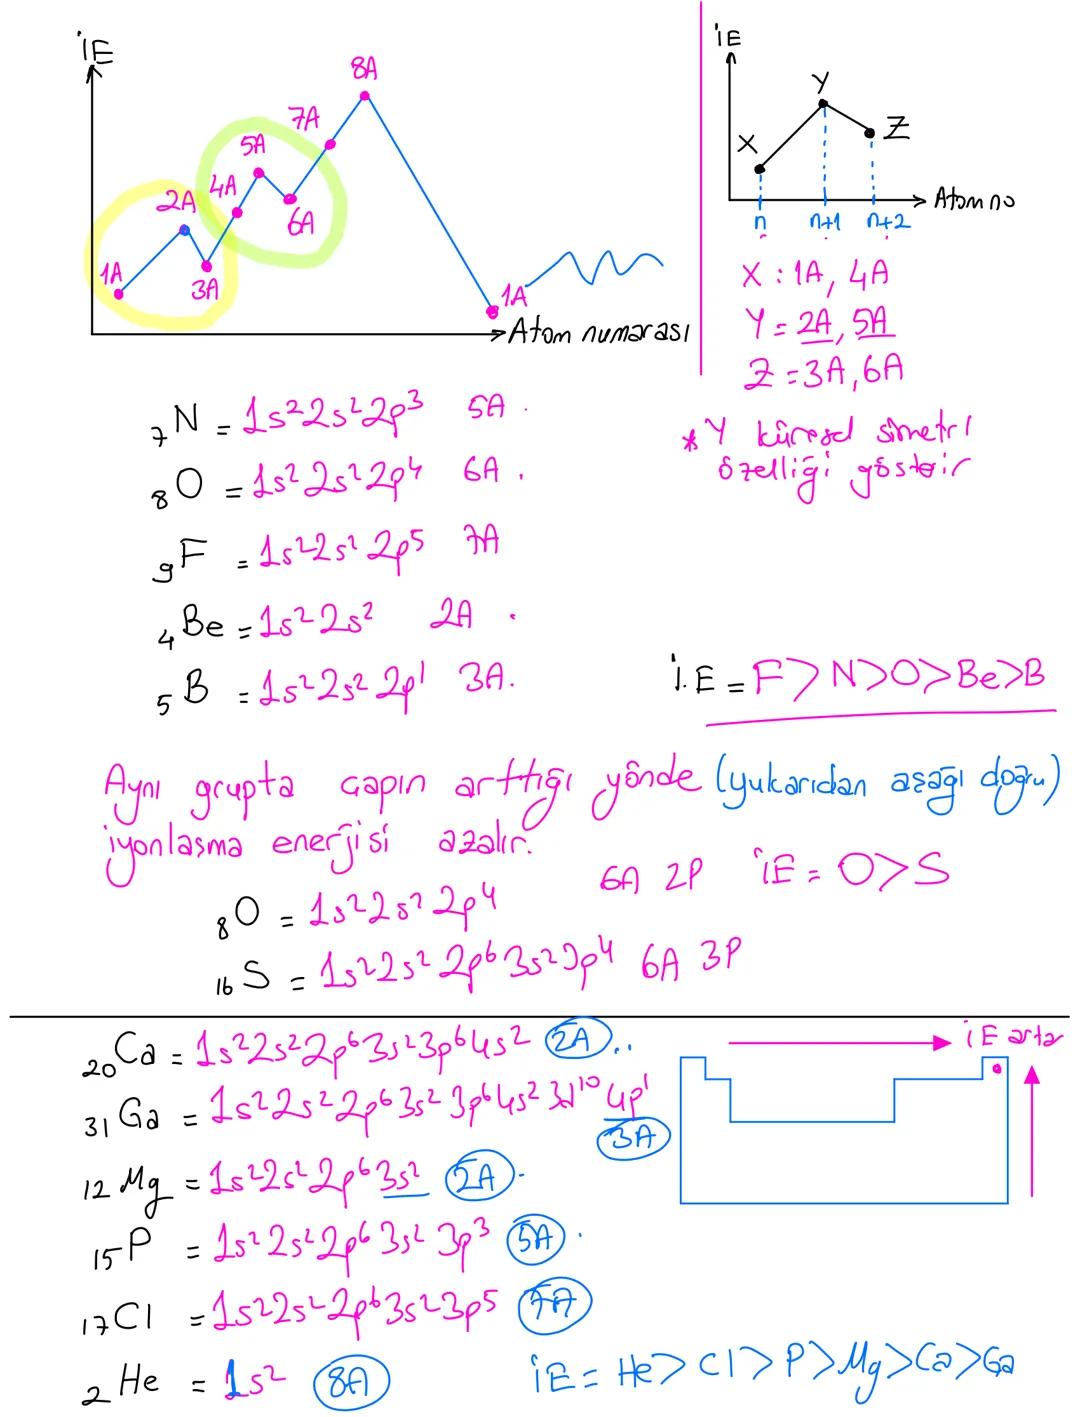 İE
8A
7A
5A
4A
2A
6A
1A
3A
1A
Atom numarası
İE
Y
X
Z
Atom no
n n+1 n+2
X : 1A, 4A
Y = 2A, 5A
Z = 3A, 6A
* Y küresel simetri
özelliği gösterir
₇N = 1s² 2s² 2p³ 5A .
₈O = 1s² 2s² 2p⁴ 6A .
₉F = 1s² 2s² 2p⁵ 7A
₄Be = 1s² 2s² 2A .
₅B = 1s² 2s² 2p¹ 3A.
İ.E = F > N > O > Be > B
Aynı grupta çapın arttığı yönde (yukarıdan aşağı doğru)
iyonlaşma enerjisi azalır.
₈O = 1s² 2s² 2p⁴ 6A 2P İE = O > S
₁₆S = 1s² 2s² 2p⁶ 3s² 3p⁴ 6A 3P
₂₀Ca = 1s² 2s² 2p⁶ 3s² 3p⁶ 4s² 2A ..
İE artar
₃₁Ga = 1s² 2s² 2p⁶ 3s² 3p⁶ 4s² 3d¹⁰ 4p¹
3A
₁₂Mg = 1s² 2s² 2p⁶ 3s² 2A .
₁₅P = 1s² 2s² 2p⁶ 3s² 3p³ 5A .
₁₇Cl = 1s² 2s² 2p⁶ 3s² 3p⁵ 7A
₂He = 1s² 8A
İE = He > Cl > P > Mg > Ca > Ga